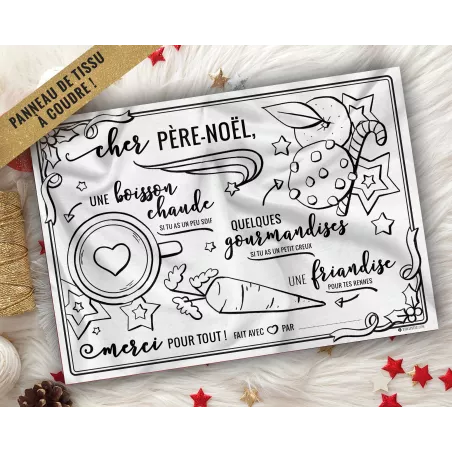 PANNEAU DE TISSU
À COUDRE !
cher PÈRE-NOËL,
UNE boisson
chaude
SI TU AS UN PEU SOIF
QUELQUES
gourmandises
SI TU AS UN PETIT CREUX
UNE friandise
POUR TES RENNES
merci POUR TOUT ! FAIT AVEC PAR